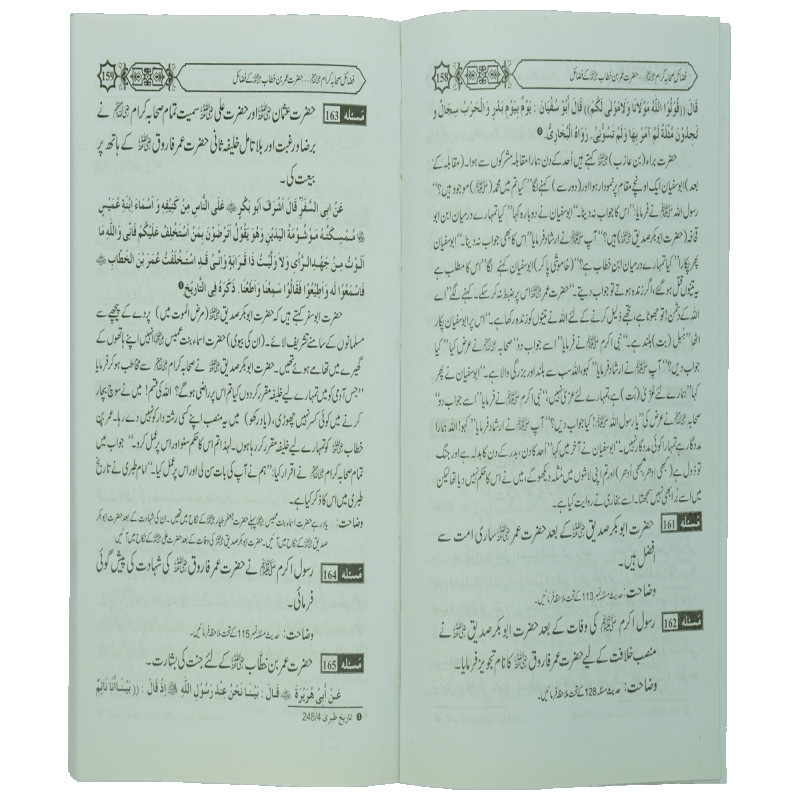 158
فضائل صحابہ کرام ﷢ ... حضرت عمر بن خطاب ﷜ کے فضائل
قَالَ ((قُوْلُوا اللّٰهُ مَوْلَانَا وَلَا مَوْلٰى لَكُمْ)) قَالَ أَبُوْ سُفْيَانَ : يَوْمٌ بِيَوْمِ بَدْرٍ وَ الْحَرْبُ سِجَالٌ وَ
تَجِدُوْنَ مُثْلَةً لَمْ آمُرْ بِهَا وَلَمْ تَسُؤْنِيْ. رَوَاهُ الْبُخَارِيُّ
حضرت براء (بن عازب) ﷜ کہتے ہیں اُحد کے دن ہمارا مقابلہ مشرکوں سے ہوا۔ (مقابلہ کے
بعد) ابوسفیان ایک اونچے مقام پر نمودار ہوا اور (دور سے) کہنے لگا ”کیا تم میں محمد (ﷺ) موجود ہیں؟“
رسول اللہ ﷺ نے فرمایا ”اس کا جواب نہ دینا۔“ ابوسفیان نے دوبارہ کہا ”کیا تمہارے درمیان ابن ابو
قحافہ (حضرت ابوبکر صدیق ﷜) ہیں؟“ آپ ﷺ نے ارشاد فرمایا ”اس کا بھی جواب نہ دینا۔“ ابوسفیان
پھر پکارا ”کیا تمہارے درمیان ابن خطاب ہے؟“ (خاموشی پا کر) ابوسفیان کہنے لگا ”اس کا مطلب ہے
یہ تینوں قتل ہو گئے، اگر زندہ ہوتے تو جواب دیتے۔“ حضرت عمر ﷜ اس پر ضبط نہ کر سکے۔ کہنے لگے ”اے
اللہ کے دشمن! تو جھوٹا ہے، تجھے ذلیل کرنے کے لئے اللہ نے تینوں کو زندہ رکھا ہے۔“ اس پر ابوسفیان پکار
اٹھا ”ہُبل (بت) بلند ہے۔“ نبی اکرم ﷺ نے فرمایا ”اسے جواب دو“ صحابہ کرام ﷢ نے عرض کیا ”کیا
جواب دیں؟“ آپ ﷺ نے ارشاد فرمایا ”کہو اللہ سب سے بلند اور بزرگی والا ہے۔“ ابوسفیان نے پھر
کہا ”ہمارے لئے عُزّیٰ (بت) ہے تمہارے لئے عزّیٰ نہیں،“ نبی اکرم ﷺ نے فرمایا ”اسے جواب دو“
صحابہ ﷢ نے عرض کی ”یا رسول اللہ ﷺ! کیا جواب دیں؟“ آپ ﷺ نے ارشاد فرمایا ”کہو! اللہ ہمارا
مددگار ہے تمہارا کوئی مددگار نہیں۔“ ابوسفیان نے آخر میں کہا ”اُحد کا دن، بدر کے دن کا بدلہ ہے اور جنگ
تو ڈول ہے (کبھی اِدھر کبھی اُدھر) اور تم اپنی لاشوں میں مُثلہ دیکھو گے، میں نے اس کا حکم نہیں دیا تھا لیکن
میں اسے بُرا بھی نہیں سمجھتا۔ اسے بخاری نے روایت کیا ہے۔
مسئلہ 161 حضرت ابوبکر صدیق ﷜ کے بعد حضرت عمر ﷜ ساری امت سے
افضل ہیں۔
وضاحت: حدیث مسئلہ نمبر 113 کے تحت ملاحظہ فرمائیں۔
مسئلہ 162 رسول اکرم ﷺ کی وفات کے بعد حضرت ابوبکر صدیق ﷜ نے
منصب خلافت کے لیے حضرت عمر فاروق ﷜ کا نام تجویز فرمایا۔
وضاحت: حدیث مسئلہ 128 کے تحت ملاحظہ فرمائیں۔
159
فضائل صحابہ کرام ﷢ ... حضرت عمر بن خطاب ﷜ کے فضائل
مسئلہ 163 حضرت عثمان ﷜ اور حضرت علی ﷜ سمیت تمام صحابہ کرام ﷢ نے
برضا ورغبت اور بلا تامل خلیفہ ثانی حضرت عمر فاروق ﷜ کے ہاتھ پر
بیعت کی۔
عَنْ اَبِى السَّفَرِ قَالَ اَشْرَفَ اَبُوْ بَكْرٍ ﷜ عَلَى النَّاسِ مِنْ كَنِيْفِهِ وَ اَسْمَاءُ ابْنَةُ عُمَيْسٍ
﷝ مُمْسِكَتُهُ مَوْشُوْمَةَ الْيَدَيْنِ وَهُوَ يَقُوْلُ اَتَرْضَوْنَ بِمَنْ اَسْتَخْلِفُ عَلَيْكُمْ فَاِنِّى وَاللّٰهِ مَا
اَلَوْتُ مِنْ جَهْدِ الرَّأْىِ وَلَا وَلَّيْتُ ذَا قَرَابَةٍ وَاِنِّى قَدِ اسْتَخْلَفْتُ عُمَرَ بْنَ الْخَطَّابِ ﷜
فَاسْمَعُوْا لَهُ وَاَطِيْعُوْا فَقَالُوْا سَمِعْنَا وَاَطَعْنَا. ذَكَرَهُ فِى التَّارِيْخِ
حضرت ابوسفر کہتے ہیں کہ حضرت ابوبکر صدیق ﷜ (مرض الموت میں) پردے کے پیچھے سے
مسلمانوں کے سامنے تشریف لائے۔ (ان کی بیوی) حضرت اسماء بنت عمیس ﷝ انہیں اپنے ہاتھوں کے
گھیرے میں تھامے ہوئے تھیں۔ حضرت ابوبکر صدیق ﷜ نے صحابہ کرام ﷢ سے مخاطب ہو کر فرمایا
”جس آدمی کو میں تمہارے لیے خلیفہ مقرر کر دوں کیا تم اس پر راضی ہو گے؟ اللہ کی قسم! میں نے سوچ بچار
کرنے میں کوئی کسر نہیں چھوڑی، (یاد رکھو) میں یہ منصب اپنے کسی رشتہ دار کو نہیں دے رہا۔ عمر بن
خطاب ﷜ کو تمہارے لیے خلیفہ مقرر کر رہا ہوں۔ لہٰذا تم اس کا حکم سنو اور اس پر عمل کرو۔“ جواب میں
تمام صحابہ کرام ﷢ نے اقرار کیا: ”ہم نے آپ کی بات سن لی اور اس پر عمل کیا۔“ امام طبری نے تاریخ
طبری میں اس کا ذکر کیا ہے۔
وضاحت: یاد رہے حضرت اسماء بنت عمیس ﷝ پہلے حضرت جعفر طیار ﷜ کے نکاح میں تھیں۔ ان کی شہادت کے بعد حضرت ابوبکر
صدیق ﷜ کے نکاح میں آئیں۔ حضرت ابوبکر صدیق ﷜ کی وفات کے بعد حضرت علی ﷜ کے نکاح میں آئیں۔
مسئلہ 164 رسول اکرم ﷺ نے حضرت عمر فاروق ﷜ کی شہادت کی پیش گوئی
فرمائی۔
وضاحت: حدیث مسئلہ نمبر 115 کے تحت ملاحظہ فرمائیں۔
مسئلہ 165 حضرت عمر بن خطاب ﷜ کے لئے جنت کی بشارت۔
عَنْ أَبِيْ هُرَيْرَةَ ﷜ قَالَ : بَيْنَا نَحْنُ عِنْدَ رَسُوْلِ اللّٰهِ ﷺ إِذْ قَالَ : ((بَيْنَا أَنَا نَائِمٌ
تاریخ طبری 248/4